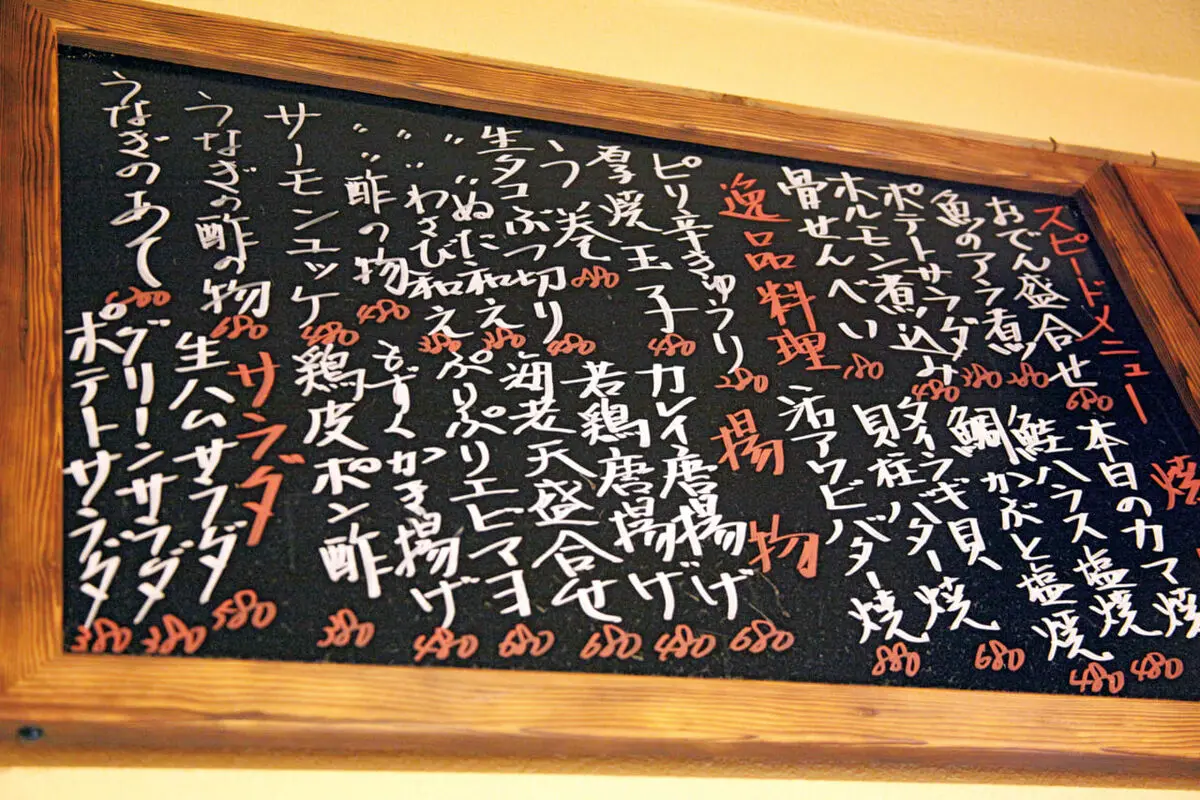 スピードメニュー
おでん盛合せ 680
魚のアラ煮 280
ポテトサラダ 380
ホルモン煮込み 480
骨せんべい 180
逸品料理
ピリ辛きゅうり 280
厚焼玉子 480
う巻き 880
生タコぶつ切り 480
〃 〃 ぬた和え 380
〃 〃 わさび和え 380
〃 〃 酢の物 480
サーモンユッケ 480
うなぎの酢の物 680
うなぎのあて
焼
本日のカマ焼
鮭ハラス塩焼 480
鯛かぶと塩焼 480
タイラギ貝
貝柱バター焼 680
活アワビバター焼 880
揚物
カレイ唐揚げ 680
若鶏唐揚げ 480
海老天盛合せ 680
ぷりぷりエビマヨ 680
もずくかき揚げ 480
鶏皮ポン酢 380
サラダ
生ハムサラダ 580
グリーンサラダ 380
ポテトサラダ 380